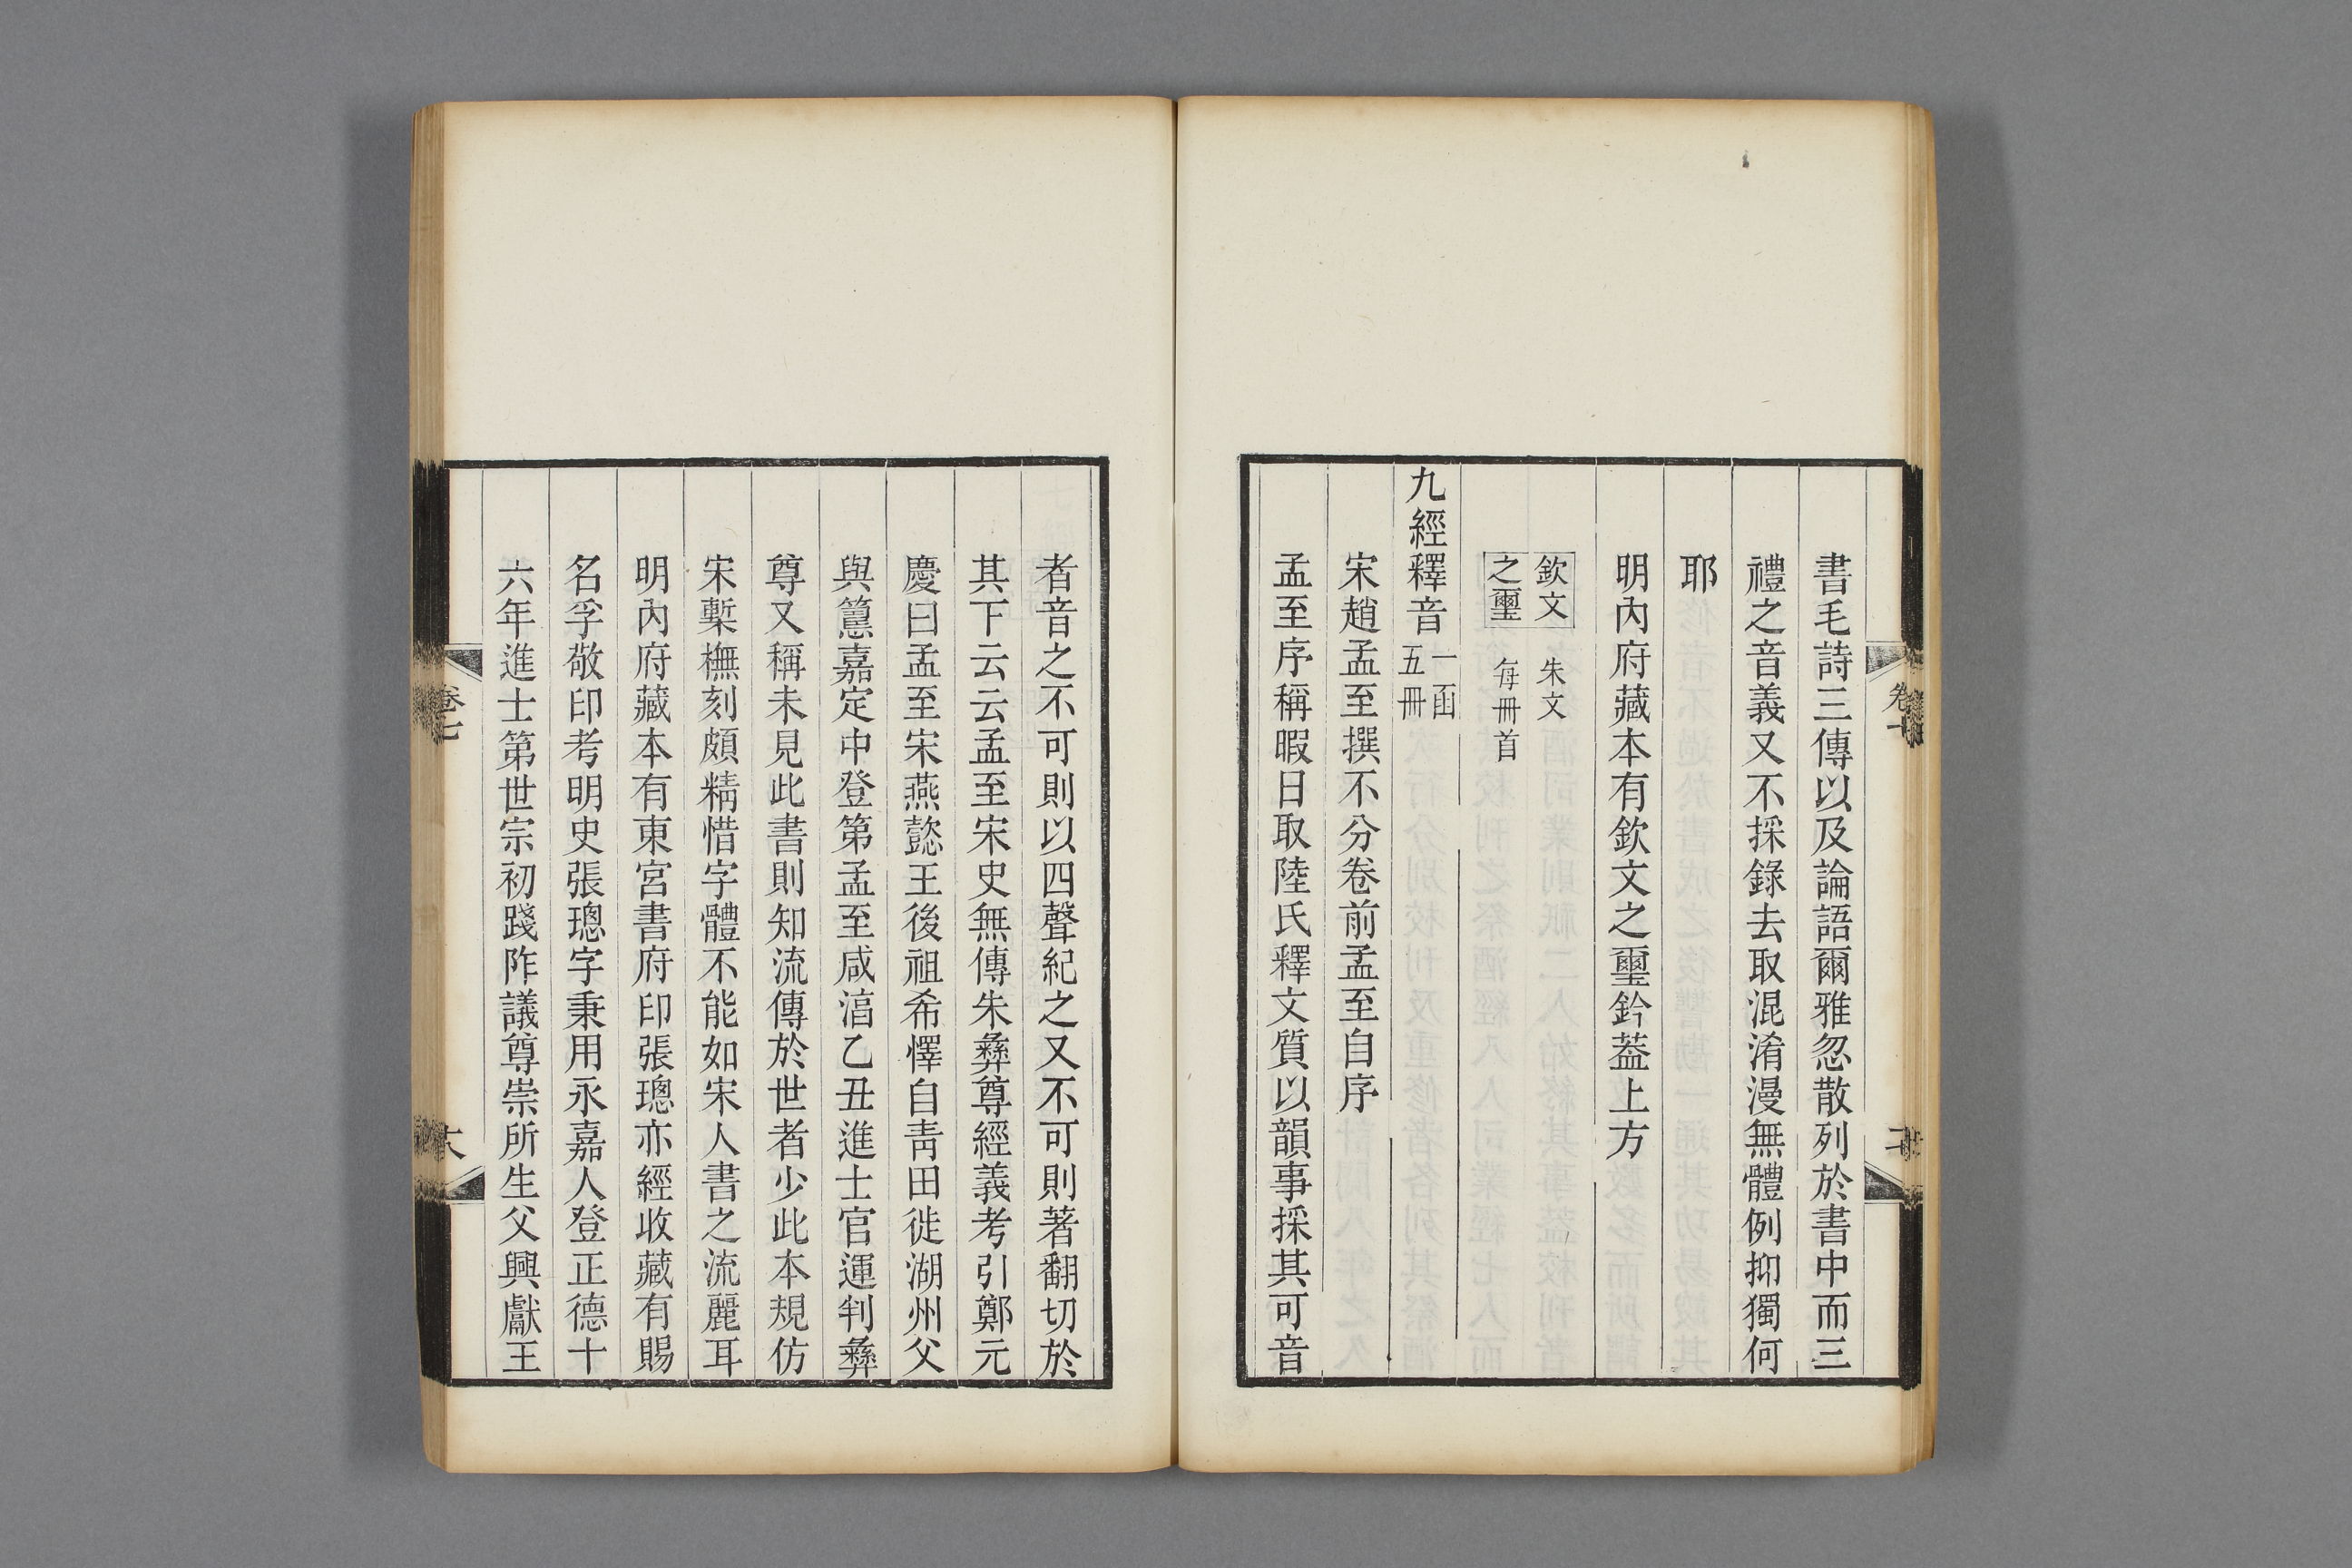 書毛詩三傳以及論語爾雅忽散列於書中而三
禮之音義又不採錄去取混淆漫無體例抑獨何
耶
明內府藏本有欽文之璽鈐葢上方
欽文 朱文
之璽 每冊首
九經釋音 一函
五冊
宋趙孟至撰不分卷前孟至自序
孟至序稱暇日取陸氏釋文質以韻事採其可音
者音之不可則以四聲紀之又不可則著翻切於
其下云云孟至宋史無傳朱彝尊經義考引鄭元
慶曰孟至宋燕懿王後祖希懌自青田徙湖州父
與𥲅嘉定中登第孟至咸湻乙丑進士官運判彝
尊又稱未見此書則知流傳於世者少此本規仿
宋槧橅刻頗精惜字體不能如宋人書之流麗耳
明內府藏本有東宮書府印張璁亦經收藏有賜
名孚敬印考明史張璁字秉用永嘉人登正德十
六年進士第世宗初踐阼議尊崇所生父興獻王
卷七